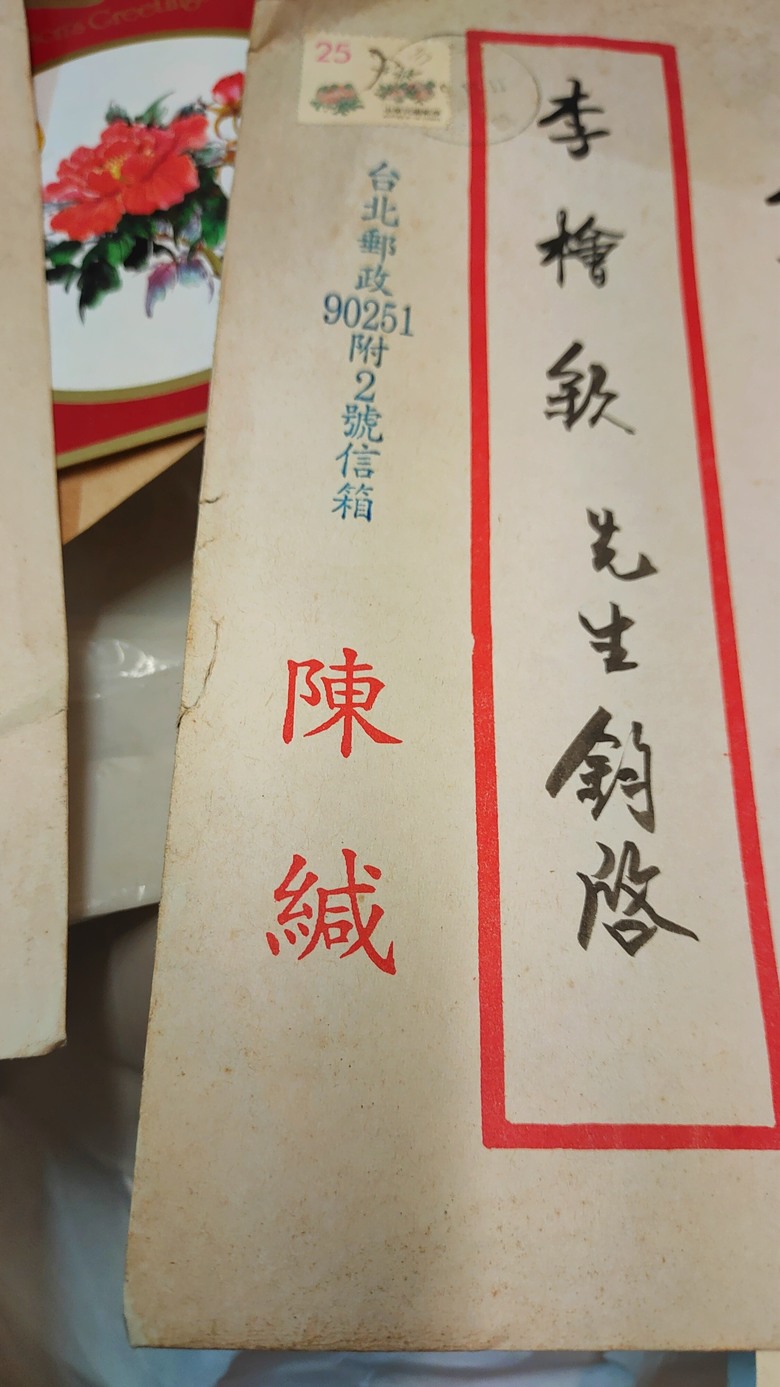 李檜欽先生鈞啓
25
台北郵政90251附2號信箱
陳緘